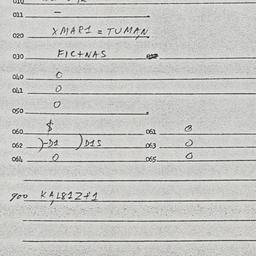 011 –
020 XMAR1 = TUMAN
030 FIC+NAS
040 0
041 0
0
050
060 $ 061 0
062 )-D1 )D1S 063 0
064 0 065 0
900 KAL81Z+1